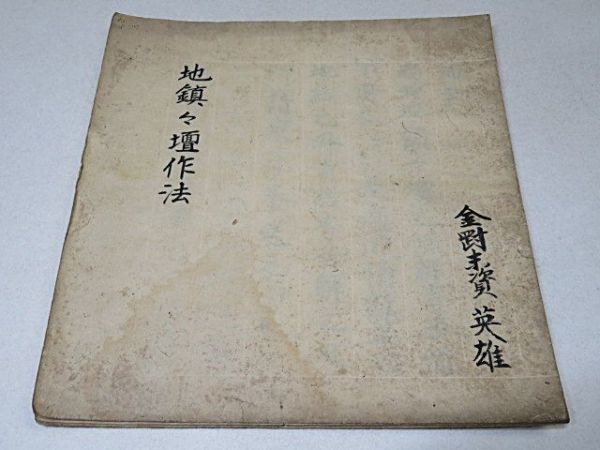 地鎮々壇作法
金剛末資英雄